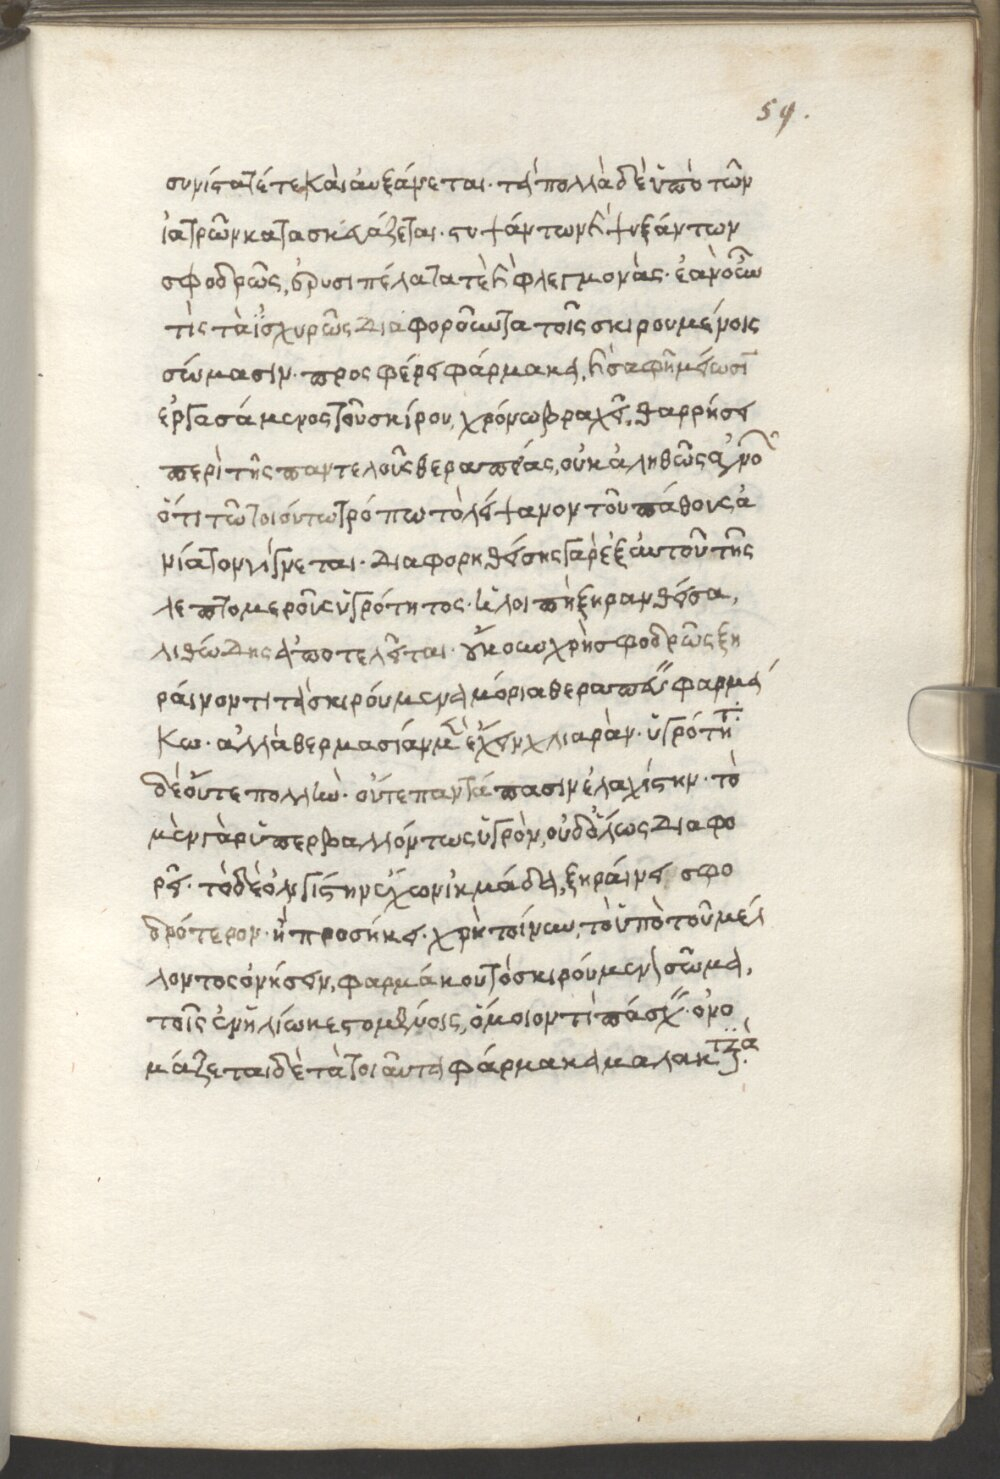 59.
συνίσταταί τε καὶ αὐξάνεται· τὰ πολλὰ δὲ ὑπὸ τῶν
ἰατρῶν κατασκευάζεται· στυψάντων κ ψυξάντων
σφοδρῶς, ἐρυσιπέλατά τε κ φλεγμονάς· ἐὰν οὖν
τις τὰ ἰσχυρῶς διαφοροῦντα τοῖς σκιρουμένοις
σώμασιν· προσφέρει φάρμακα, κ σαφῆ μείωσϊ
ἐργασάμενος τοῦ σκίρου, χρόνω βραχεῖ, θαρρήσει
περὶ τῆς παντελοῦς θεραπείας, οὐκ ἀληθῶς
ὅτι τῶ τοιούτω τρόπω τὸ λείψανον τοῦ πάθους ἀ
νίατον γίγνεται· διαφορηθείσης γὰρ ἐξ αὐτοῦ τῆς
λεπτομεροῦς ὑγρότητος· ἡ λοιπὴ ξηρανθεῖσα,
λιθώδης ἀποτελεῖται· οὔκουν χρὴ σφοδρῶς ξη
ραίνοντι τὰ σκιρούμενα μόρια θεραπεύ φαρμά
κω· ἀλλὰ θερμασίαν μὲν ἔχειν χλιαράν· ὑγρότητ
δὲ οὔτε πολλὴν· οὔτε παντάπασιν ἐλαχίστην· τὸ
μὲν γὰρ ὑπερβαλλόντως ὑγρὸν, οὐδόλως διαφο
ρεῖ· τὸ δὲ ὀλιγίστην ἔχων ἰκμάδα, ξηραίνει σφο
δρότερον· ἢ προσήκει· χρὴ τοίνυν, τὸ ὑπὸ τοῦ μέλ
λοντος ὀνήσειν, φαρμάκου τὸ σκιρούμενον σῶμα,
τοῖς ἐν ἡλίω κεστομένοις, ὅμοιον τὶ πάσχ· ὀνο
μάζεται δὲ τὰ τοιαῦτα φάρμακα μαλακτικὰ·